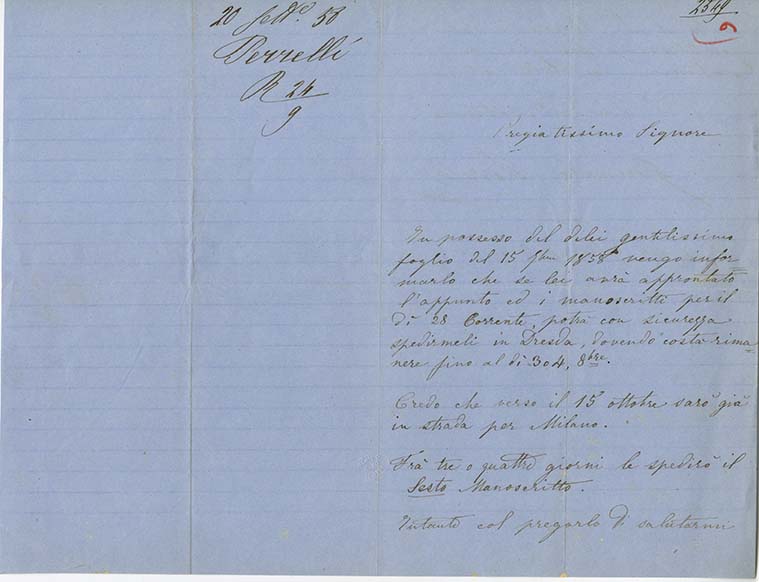 20 sett.e 58
Perrelli
R 24
9
2349
9
Pregiatissimo Signore
In possesso del dilei gentilissimo
foglio del 15 7bre 1858 vengo infor=
marlo che se lei avrà approntato
l'appunto ed i manoscritti per il
dì 28 Corrente, potrà con sicurezza
spedirmeli in Dresda, dovendo costà rima=
nere fino al dì 3 o 4, 8bre.
Credo che verso il 15 ottobre sarò già
in strada per Milano.
Frà tre o quattro giorni le spedirò il
Sesto Manoscritto.
Intanto col pregarlo di salutarmi